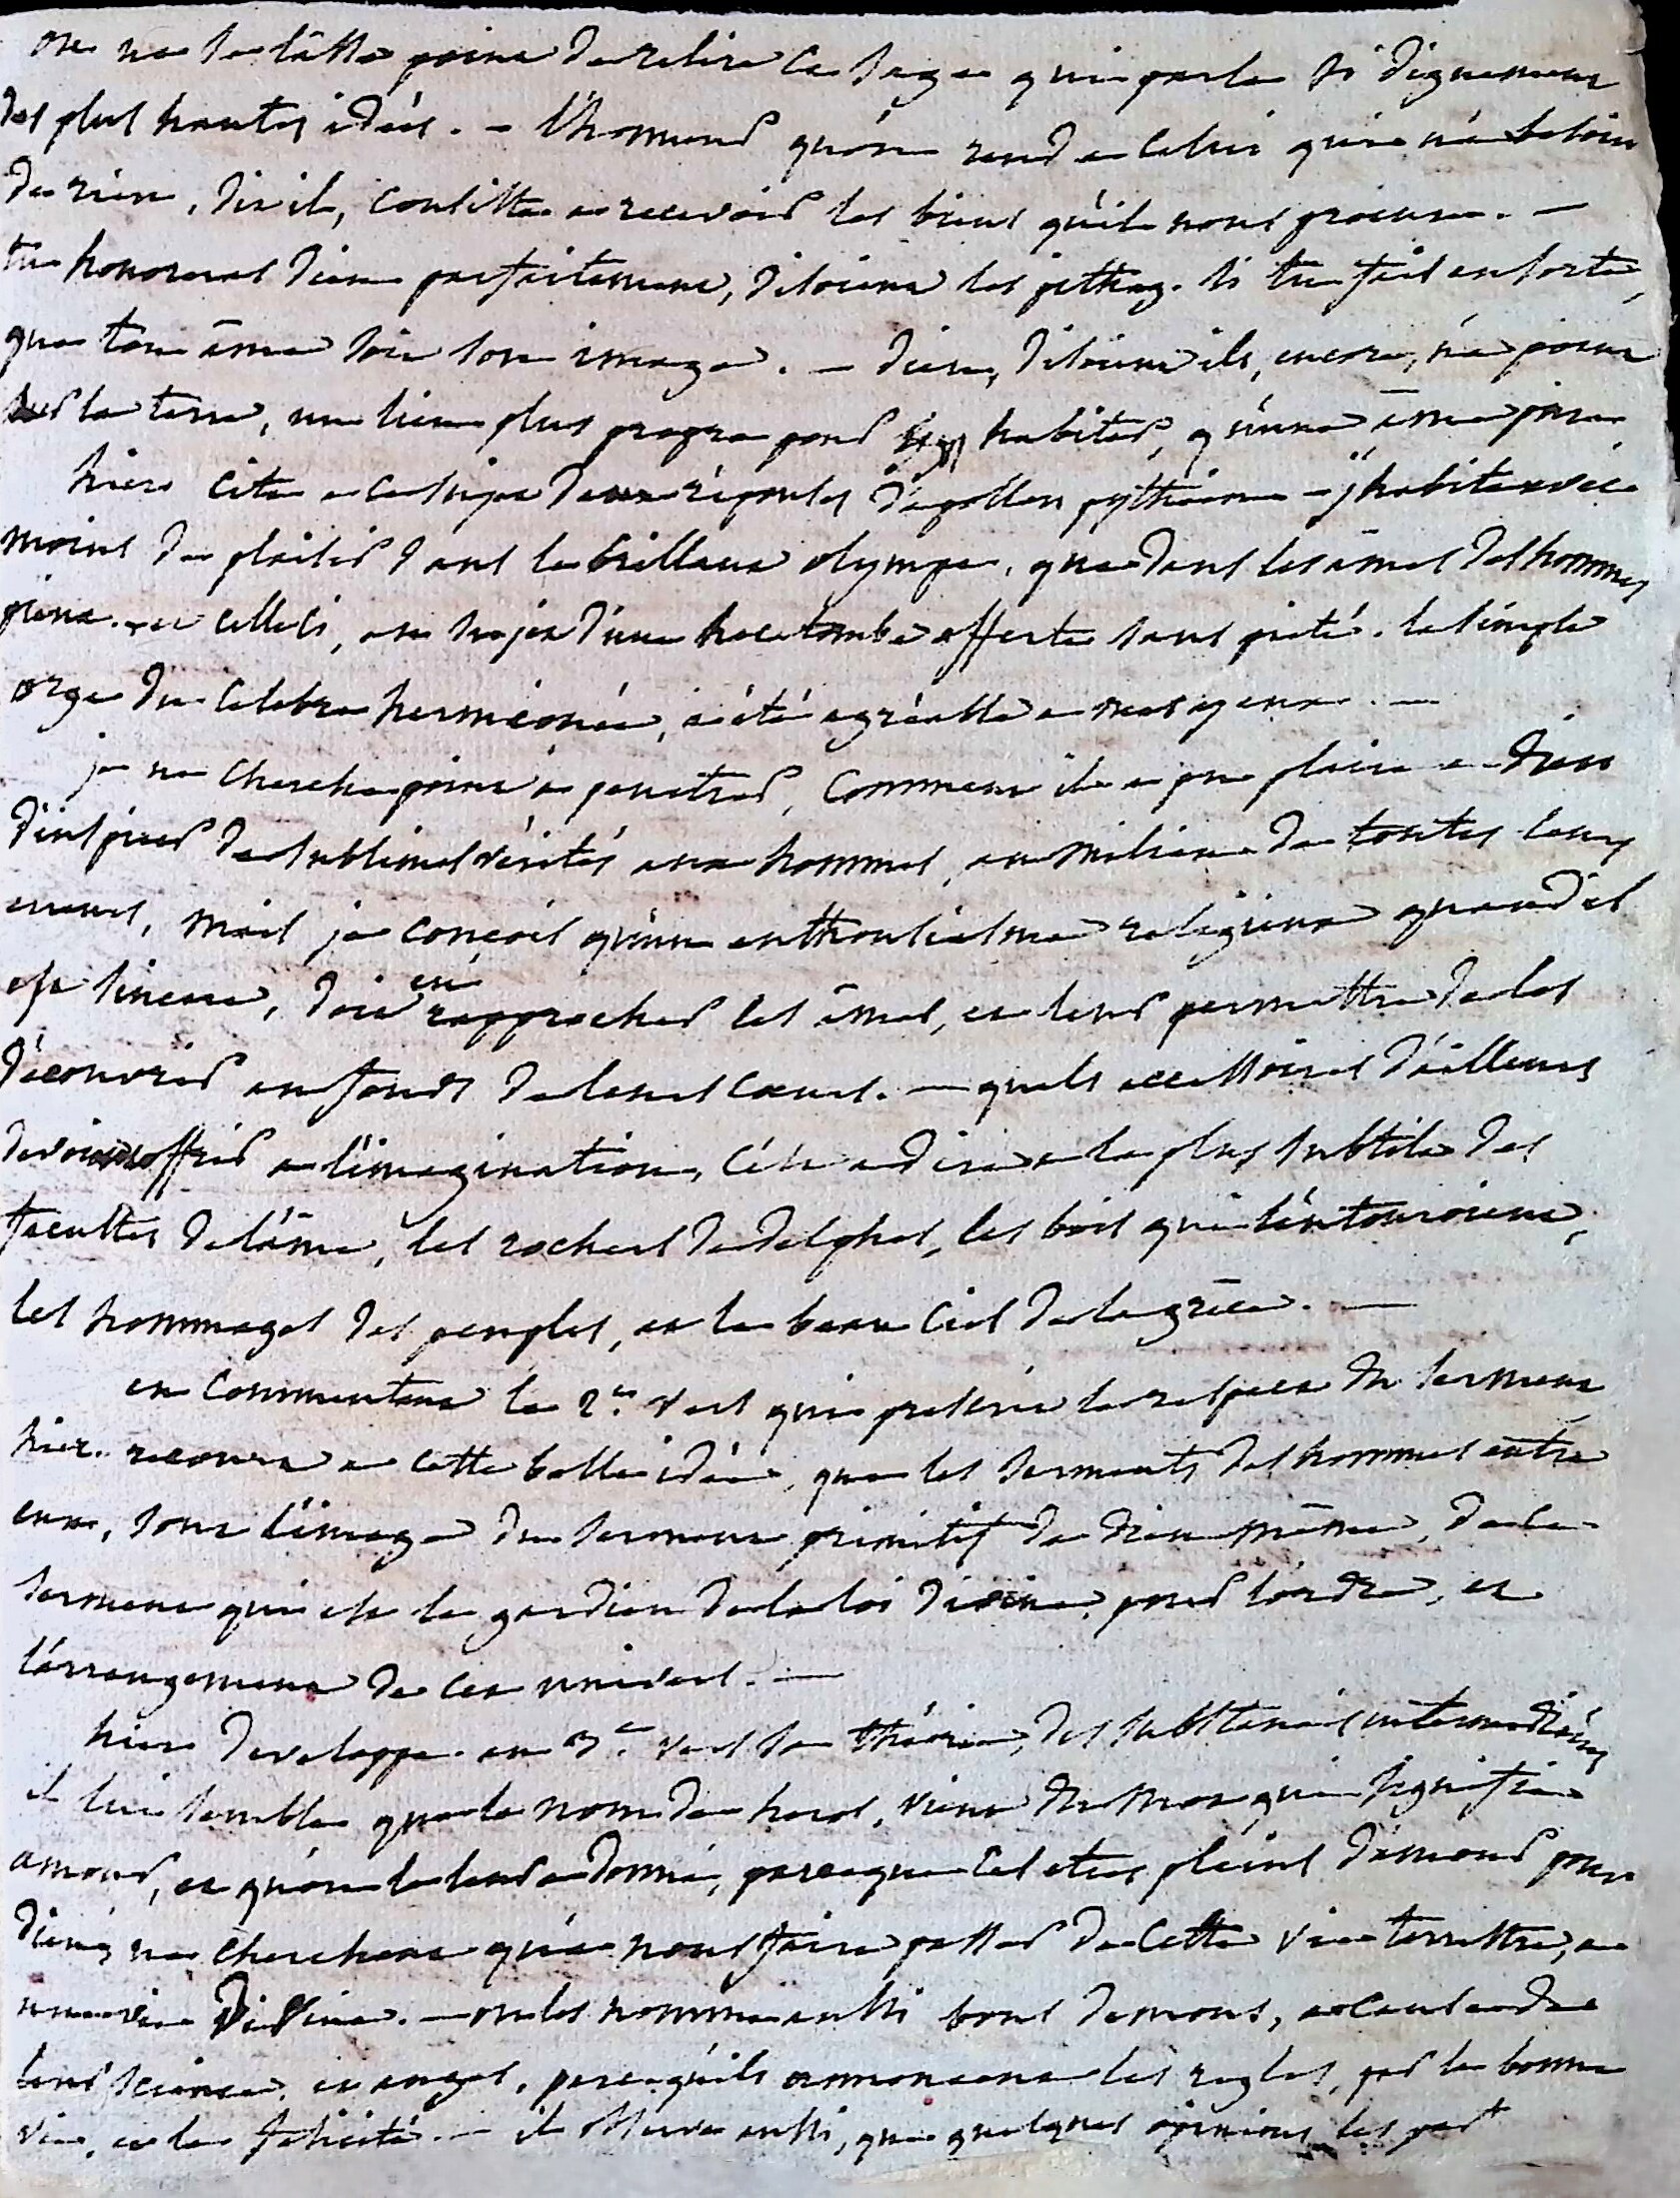 on ne se lasse point de relire ce sage qui parle si dignement
des plus hautes idées. - l'honneur qu'on rend a celui qui n'a besoin
de rien, dit il, consiste a recevoir les biens qu'il nous procure. -
tu honoreras dieu parfaitement, disoient les pithag. si tu fais en sorte,
que ton âme soit son image. - dieu, disoient ils, encore, n'a point
sur la terre, un lieu plus propre pour habiter, qu'une âme pure
hier. cite a ce sujet deux réponses d'apollon pythien - j'habite avec
moins de plaisir dans le brillant olympe, que dans les âmes des hommes
pieux. - et celle ci, au sujet d'une hecatombe offerte sans piété. la simple
orge du celebre hermionée, a été agréable a mes yeux. -
je ne cherche point a penetrer, comment il a pu plaire a dieu
d'inspirer de sublimes vérités aux hommes, au milieu de toutes leurs
erreurs, mais je conçois qu'un enthousiasme religieux quand il
est sincere, doit en rapprocher les âmes, et leur permettre de les
découvrir au fonds de leurs coeurs. - quels accessoires d'ailleurs
devoient offrir a l'imagination, c'est a dire a la plus subtile des
facultes de l'âme, les rochers de delphes, les bois qui l'entouroient,
les hommages des peuples, et le beau ciel de la grèce. -
en commentant le 2e. vers qui prescrit le respect du serment
hier. recourt a cette belle idée, que les serments des hommes entre
eux, sont l'image du serment primitif de dieu même, de ce
serment qui est le gardien de la loi divine, pour l'ordre, et
l'arrangement de cet univers. -
hier. developpe au 3e. vers sa théorie, des substances intermediaires
il lui semble que le nom de heros, vient du mot qui signifie
amour, et qu'on le leur a donné, parceque ces etres pleins d'amour pour
dieu, ne cherchent qu'a nous faire passer de cette vie terrestre, a
une vie divine. - on les nomme aussi bons demons, a cause de
leur science, et anges, parcequ'ils annoncent les regles, pour la bonne
vie, et la felicité. - il observe aussi, que quelques opinions les par